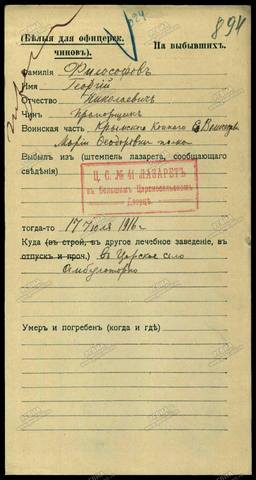 894
(Бѣлыя для офицерск. чиновъ).
На выбывшихъ.
Фамилія Философовъ
Имя Георгій
Отчество Николаевичъ
Чинъ Прапорщикъ
Воинская часть Крымского Конного Е. Велич.
Маріи Ѳеодоровны полка
Выбылъ изъ (штемпель лазарета, сообщающаго
свѣдѣнія)
Ц. С. № 41 ЛАЗАРЕТЪ
въ Большомъ Царскосельскомъ
Дворцѣ
тогда-то 17 Іюля 1916 г
Куда (въ строй, въ другое лечебное заведеніе, въ
отпускъ и проч.) въ Царское село
Амбулаторно
Умеръ и погребенъ (когда и гдѣ)